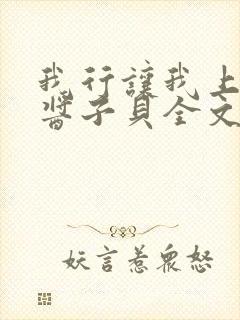 我行讓我上
醬子貝全文
妖言惹衆怒